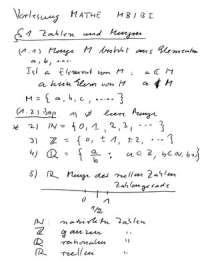 Vorlesung MATHE MBIBI
§1 Zahlen und Mengen
(1.1) Menge M besteht aus Elementen
a, b, ...
Ist a Element von M : a ∈ M
a kein Elem von M a ∉ M
M = { a, b, c, ..... }
(1.2) Bsp. 1) ∅ leere Menge
* 2) ℕ = { 0, 1, 2, 3, ... }
3) ℤ = { 0, ±1, ±2, ... }
4) ℚ = { a/b : a ∈ ℤ, b ∈ ℕ, b≠0 }
5) ℝ Menge der reellen Zahlen
Zahlengerade
0 1
1/2
ℕ : natürliche Zahlen
ℤ ganzen "
ℚ rationalen "
ℝ reellen "